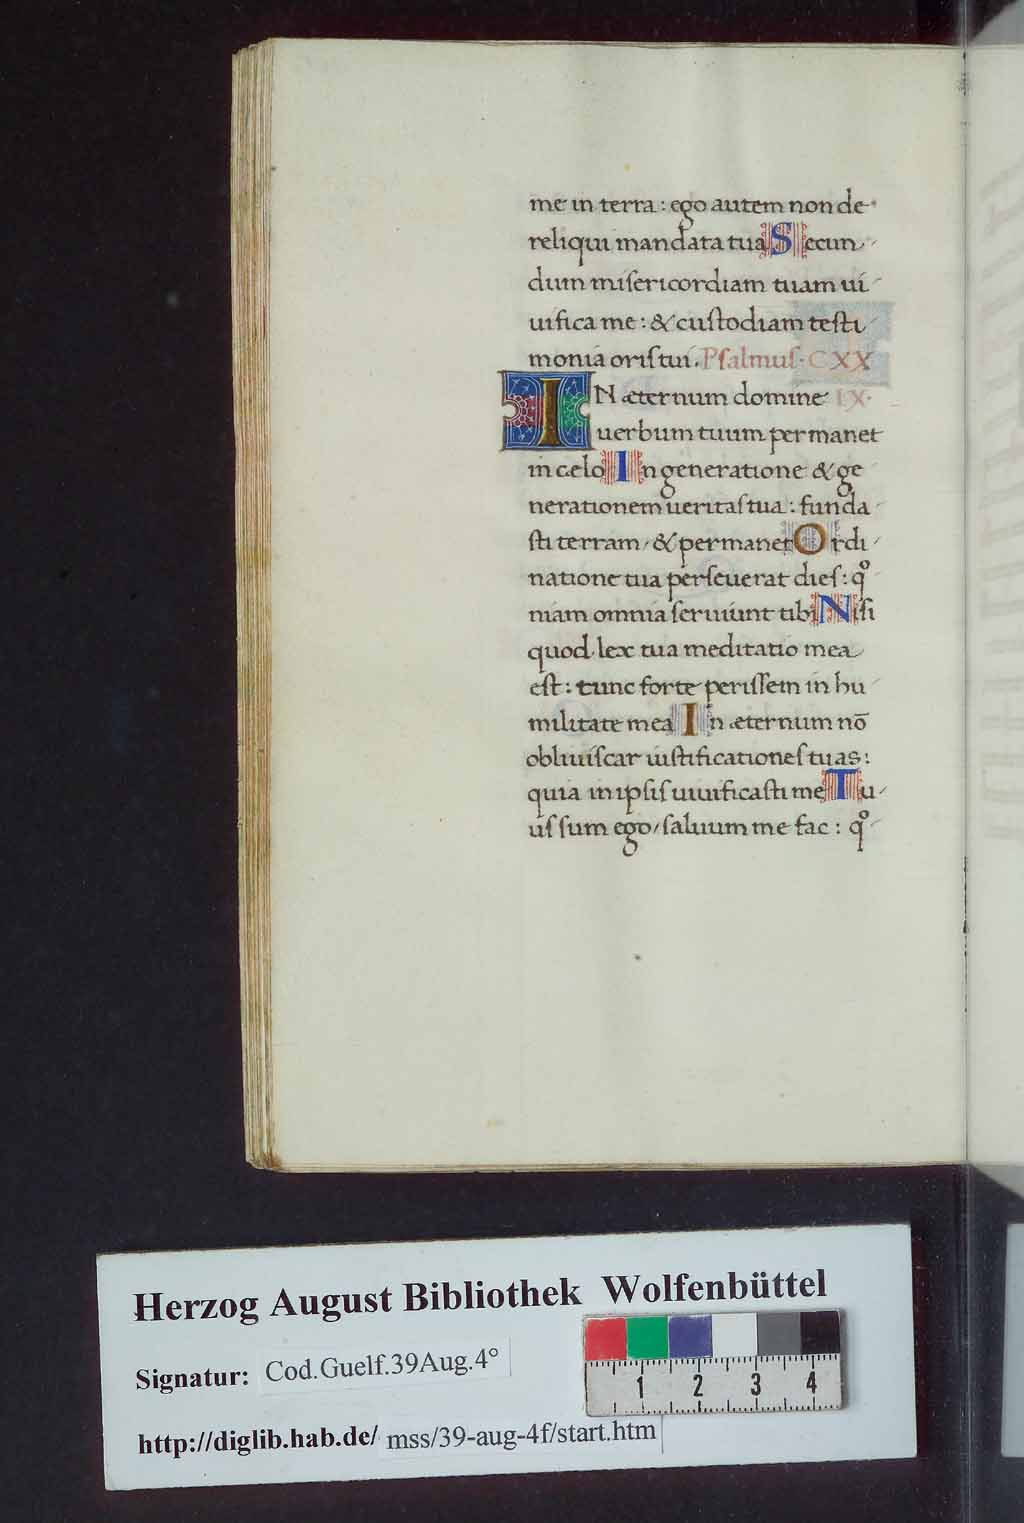 me in terra: ego autem non de-
reliqui mandata tua Secun-
dum miſericordiam tuam ui-
uifica me: & cuſtodiam teſti-
monia oriſ tui. Pſalmuſ. CXX
IN æternum domine IX.
uerbum tuum permanet
in cęlo In generatione & ge
nerationem ueritaſ tua: funda-
ſti terram, & permanet Ordi-
natione tua perſeuerat dieſ: qͦ-
niam omnia ſeruiunt tibi Niſi
quod lex tua meditatio mea
eſt: tunc forte periſſem in hu
militate mea In æternum nō
obliuiſcar iuſtificationeſ tuas:
quia in ipſiſ uiuificaſti me Tu-
uſ ſum ego, ſaluum me fac: qͦ-
Herzog August Bibliothek Wolfenbüttel
Signatur: Cod.Guelf.39Aug.4°
1 2 3 4
http://diglib.hab.de/ mss/39-aug-4f/start.htm